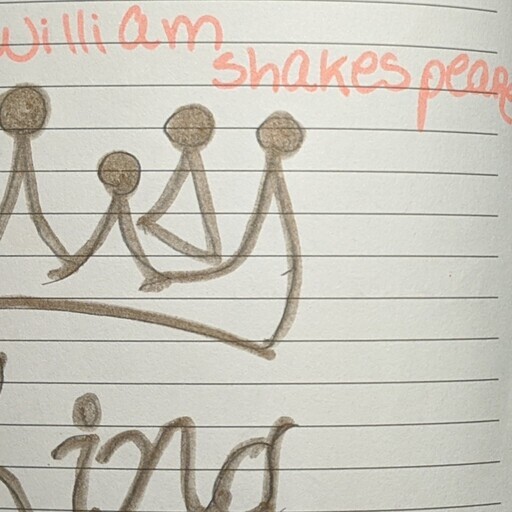 William
shakespeare
King